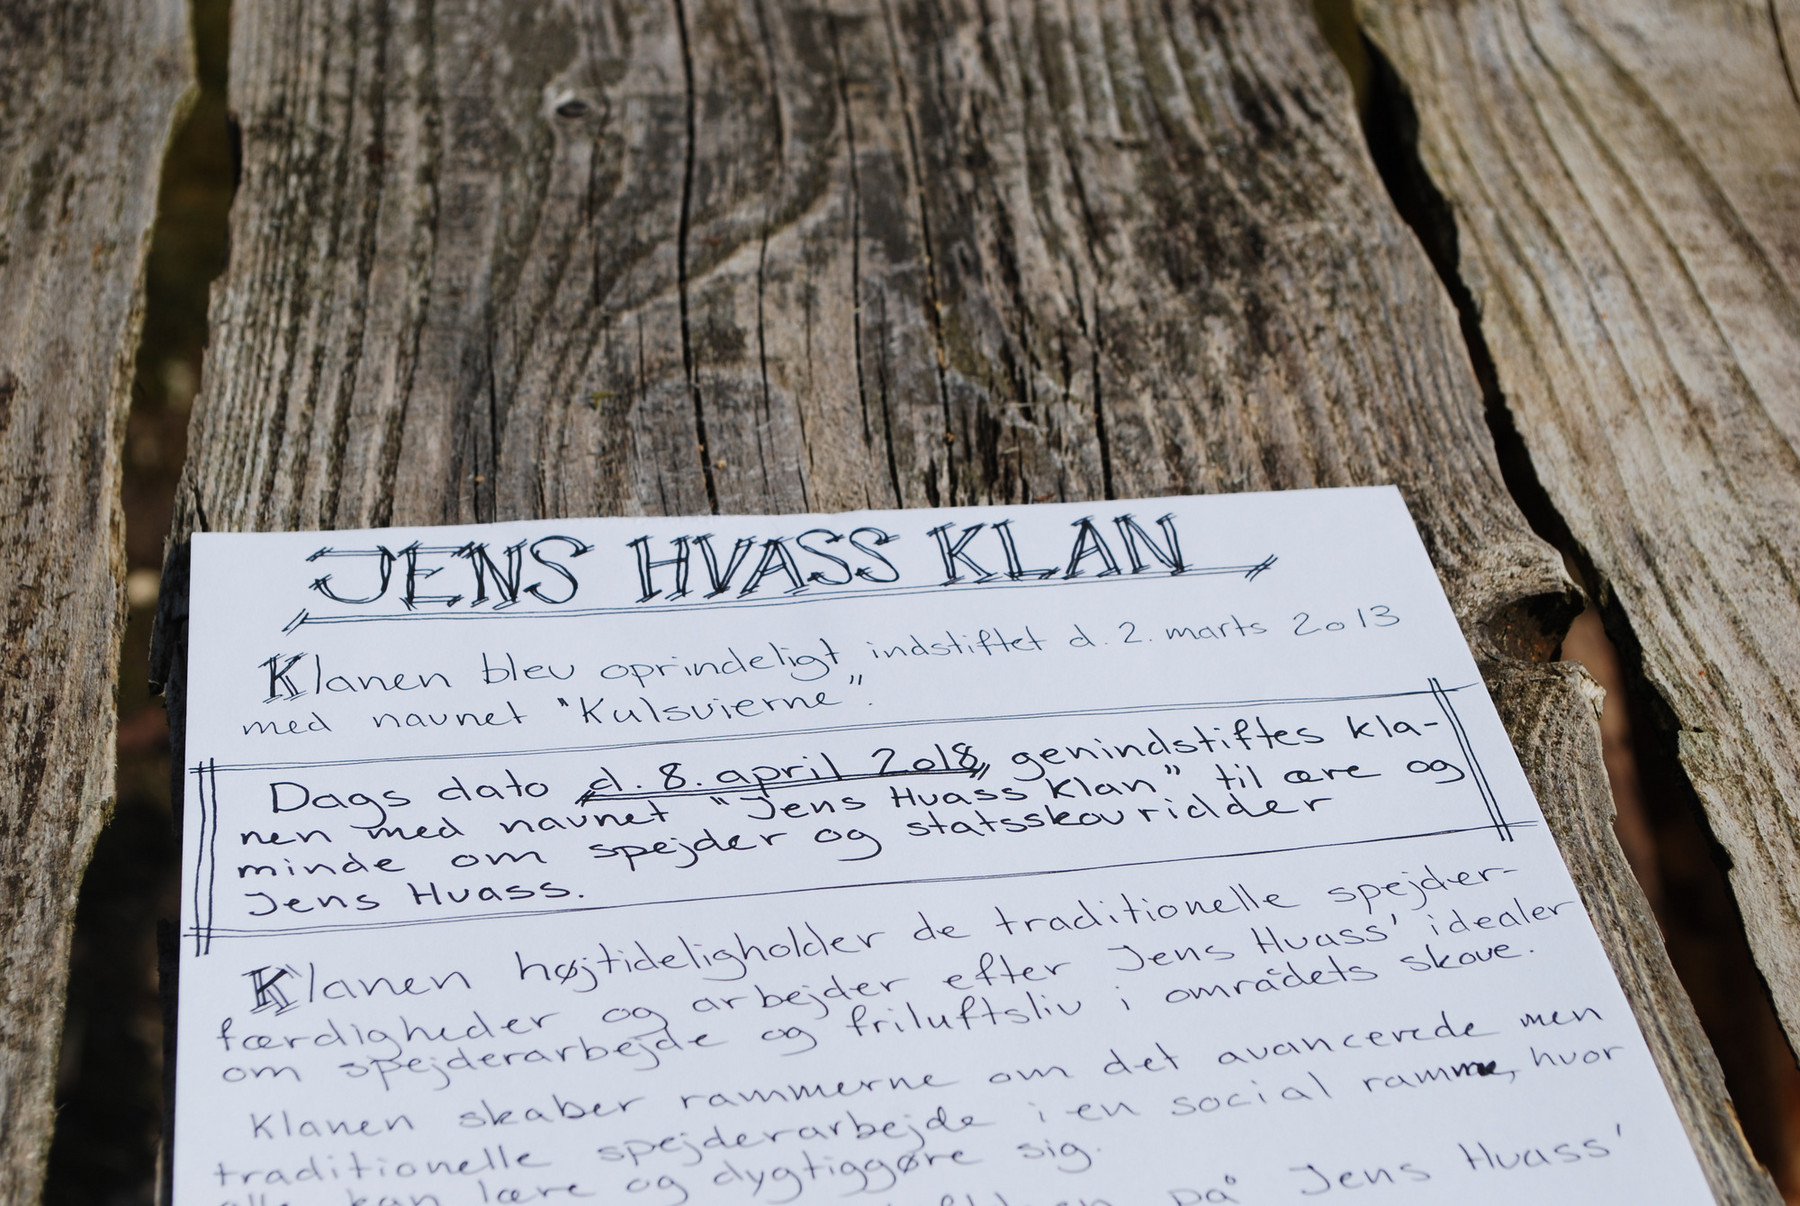 JENS HVASS KLAN
Klanen blev oprindeligt indstiftet d. 2. marts 2013
med navnet "Kulsvierne".
Dags dato d. 8. april 2018, genindstiftes kla-
nen med navnet "Jens Hvass Klan" til ære og
minde om spejder og statsskovridder
Jens Hvass.
Klanen højtideligholder de traditionelle spejder-
færdigheder og arbejder efter Jens Hvass' idealer
om spejderarbejde og friluftsliv i områdets skove.
Klanen skaber rammerne om det avancerede men
traditionelle spejderarbejde i en social ramme, hvor
alle kan lære og dygtiggøre sig.
på Jens Hvass'